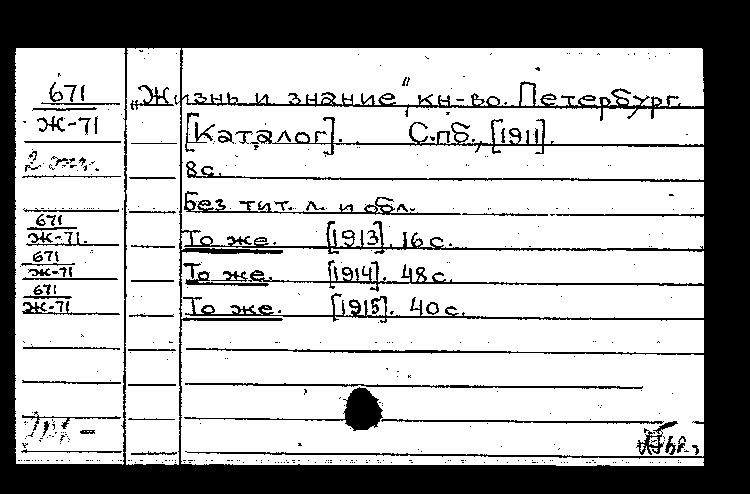 671 „Жизнь и знание“, кн-во. Петербург.
Ж-71 [Каталог]. С.пб., [1911].
2 экз. 8 с.
Без тит. л. и обл.
671
Ж-71. То же. [1913]. 16 с.
671
Ж-71 То же. [1914]. 48 с.
671
Ж-71 То же. [1915]. 40 с.